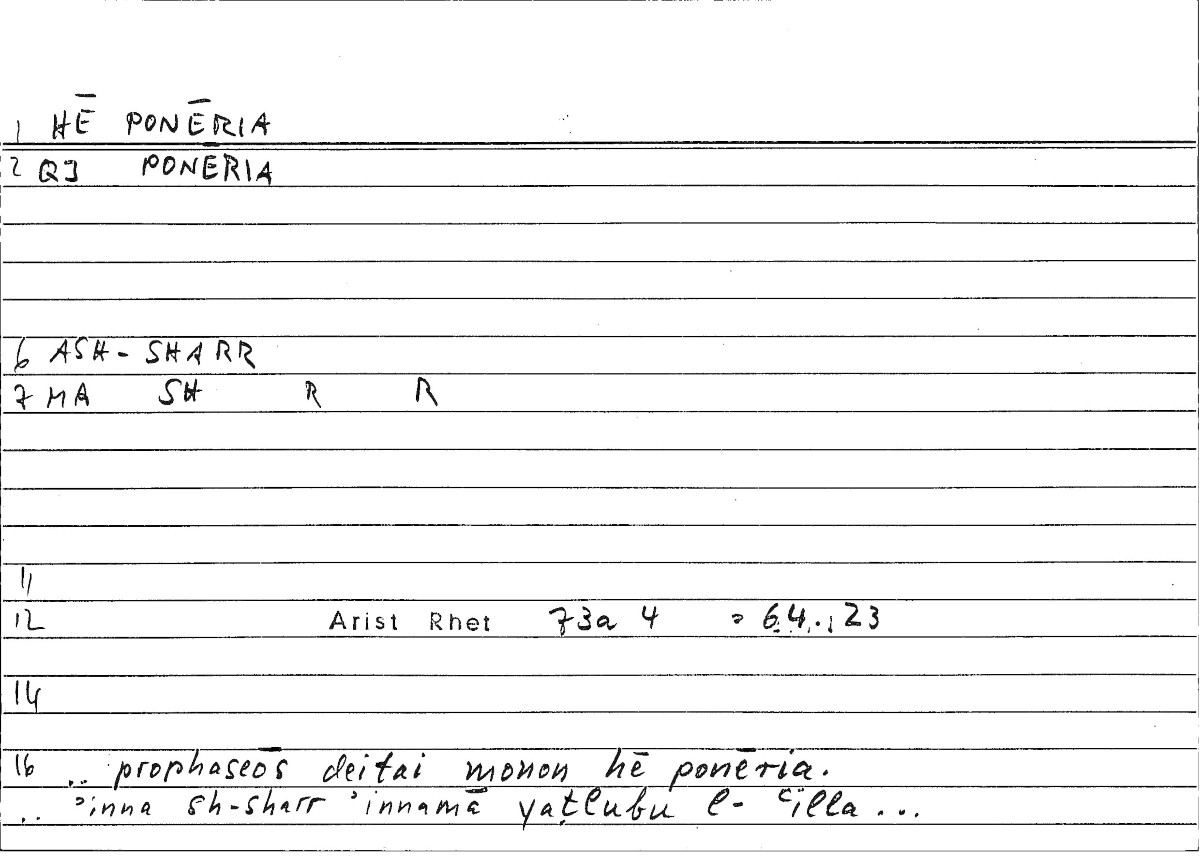 1 HĒ PONĒRIA
2 QJ PONĒRIA
6 ASH-SHARR
7 MA SH R R
11
12 Arist Rhet 73a 4 = 64.,23
14
16 .. prophaseōs deitai monon hē ponēria.
.. ʾinna sh-sharr ʾinnamā yaṭlubu l-ʿilla ...